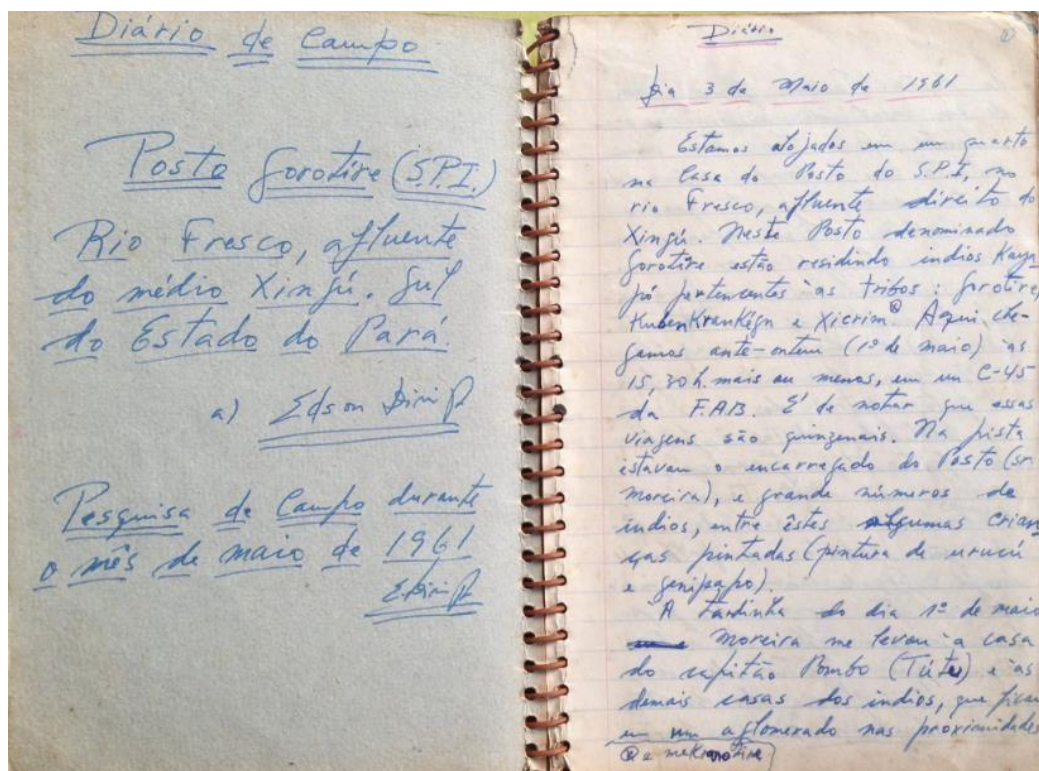 Diário de Campo
Posto Gorotire (S.P.I.)
Rio Fresco, afluente
do médio Xingú. Sul
do Estado do Pará.
a) Edson Diniz
Pesquisa de Campo durante
o mês de maio de 1961
E. Diniz
Diário
Dia 3 de Maio de 1961
Estamos alojados em um quarto
na Casa do Posto do S.P.I, no
rio Fresco, afluente direito do
Xingú. Neste Posto denominado
Gorotire estão residindo indios Kaya
pó pertencentes às tribos: Gorotire,
KubenKranKêgn e Xicrim ⊗ Aqui che-
gamos ante-ontem (1º de maio) às
15,30 h. mais ou menos, em um C-45
da F.A.B. É de notar que essas
viagens são quinzenais. Na pista
estavam o encarregado do Posto (sr.
Moreira), e grande números de
indios, entre êstes algumas crian
ças pintadas (pintura de urucú
e genipapo).
A tardinha do dia 1º de maio
Moreira me levou à casa
do capitão Pombo (Tútu) e às
demais casas dos indios, que ficam
em um aglomerado nas proximidades
⊗ e meKranotire